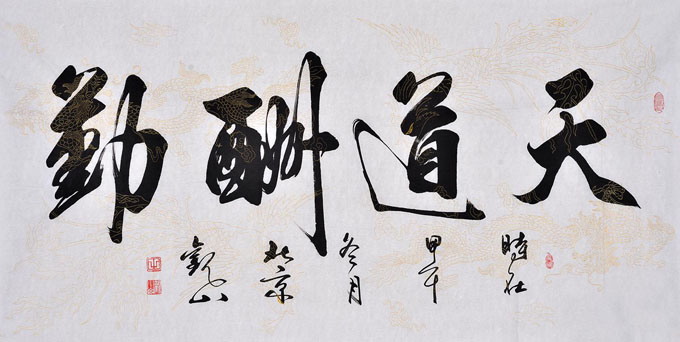 天道酬勤
時在甲午冬月北京